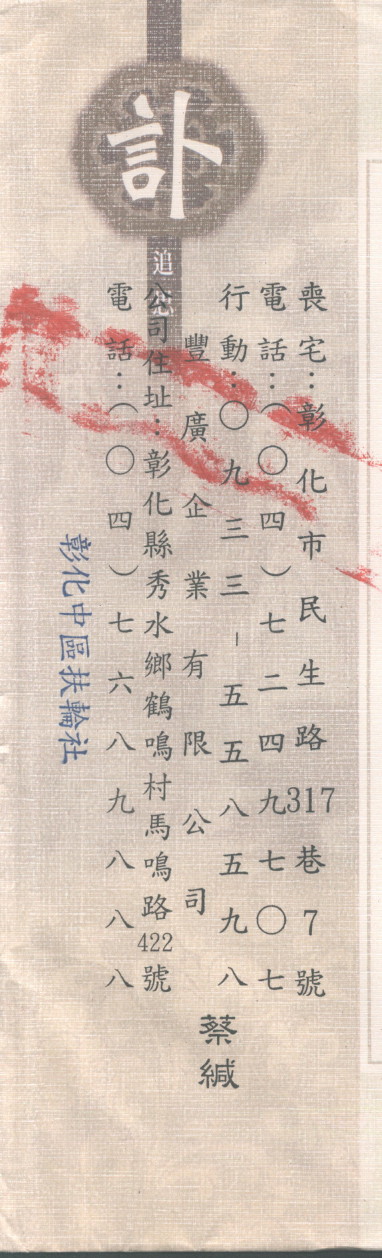 訃
追思
喪宅：彰化市民生路317巷7號
電話：（〇四）七二四九七〇七
行動：〇九三三－五五八五九八
豐廣企業有限公司
公司住址：彰化縣秀水鄉鶴鳴村馬鳴路422號
電話：（〇四）七六八九八八八
蔡緘
彰化中區扶輪社